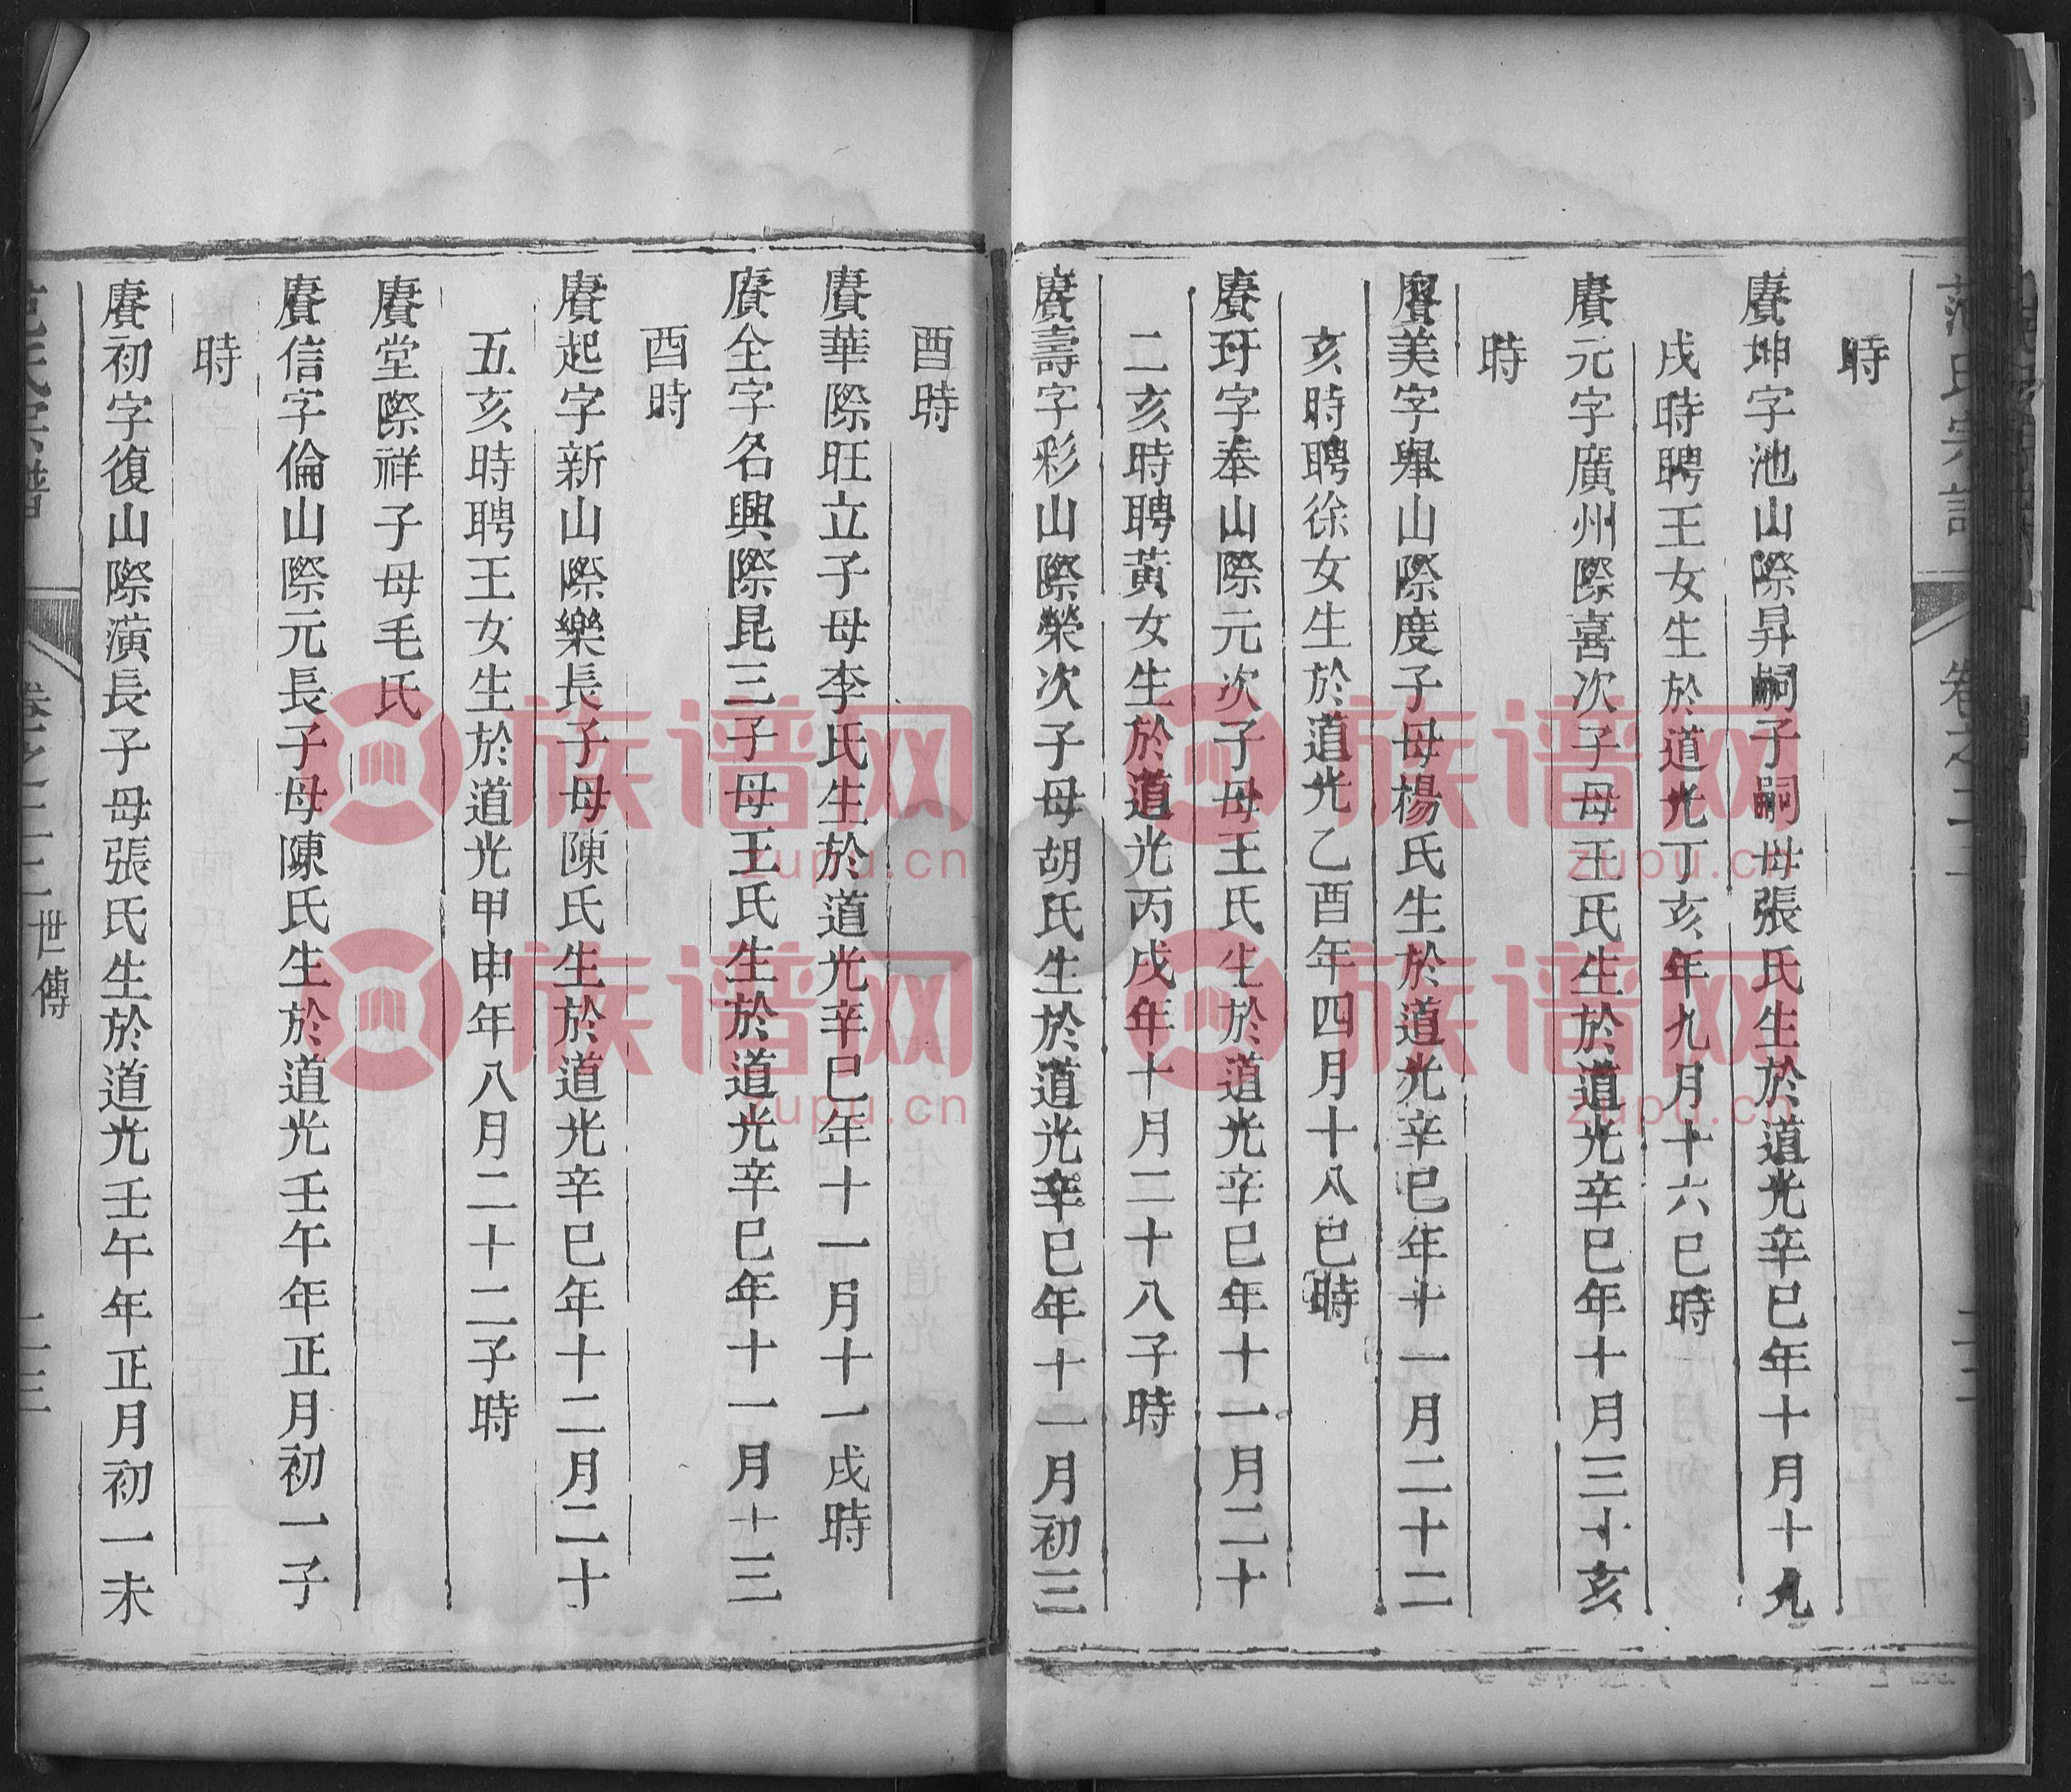 時
賡坤字池山際昇嗣子嗣母張氏生於道光辛巳年十月十九
戌時聘王女生於道光丁亥年九月十六巳時
賡元字廣州際喜次子母王氏生於道光辛巳年十月三十亥
時
賡美字舉山際度子母楊氏生於道光辛巳年十一月二十二
亥時聘徐女生於道光乙酉年四月十八巳時
賡玨字奉山際元次子母王氏生於道光辛巳年十一月二十
二亥時聘黃女生於道光丙戌年十月二十八子時
賡壽字彩山際榮次子母胡氏生於道光辛巳年十一月初三
酉時
賡華際旺立子母李氏生於道光辛巳年十一月十一戌時
賡全字名興際昆三子母王氏生於道光辛巳年十一月十三
酉時
賡起字新山際樂長子母陳氏生於道光辛巳年十二月二十
五亥時聘王女生於道光甲申年八月二十二子時
賡堂際祥子母毛氏
賡信字倫山際元長子母陳氏生於道光壬午年正月初一子
時
賡初字復山際潢長子母張氏生於道光壬午年正月初一未
世傳
族谱网
zupu.cn
族谱网
zupu.cn
族谱网
zupu.cn
族谱网
zupu.cn